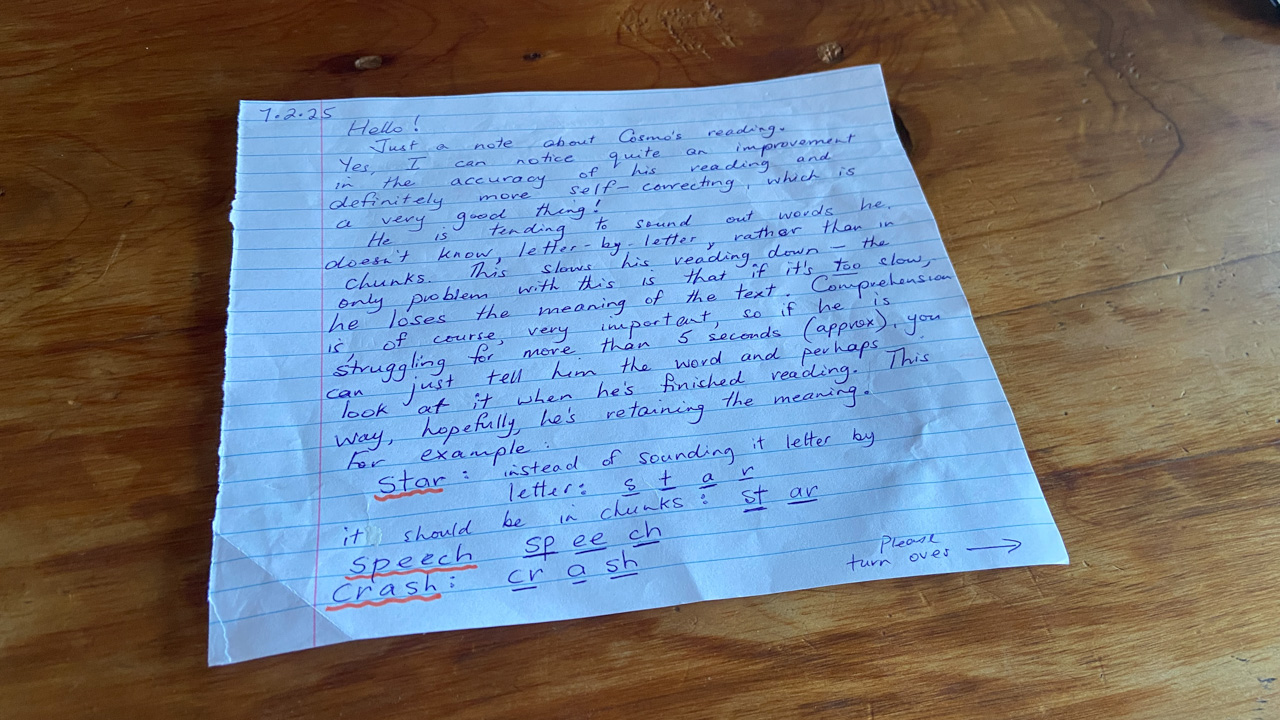 7.2.25
Hello!
Just a note about Cosmo's reading.
Yes, I can notice quite an improvement
in the accuracy of his reading and
definitely more self-correcting, which is
a very good thing!
He is tending to sound out words he
doesn't know, letter-by-letter, rather than in
chunks. This slows his reading down - the
only problem with this is that if it's too slow,
he loses the meaning of the text. Comprehension
is, of course, very important, so if he is
struggling for more than 5 seconds (approx), you
can just tell him the word and perhaps
look at it when he's finished reading. This
way, hopefully, he's retaining the meaning.
For example:
star: instead of sounding it letter by
letter: s t a r
it should be in chunks: st ar
speech sp ee ch
crash: cr a sh
Please
turn over →